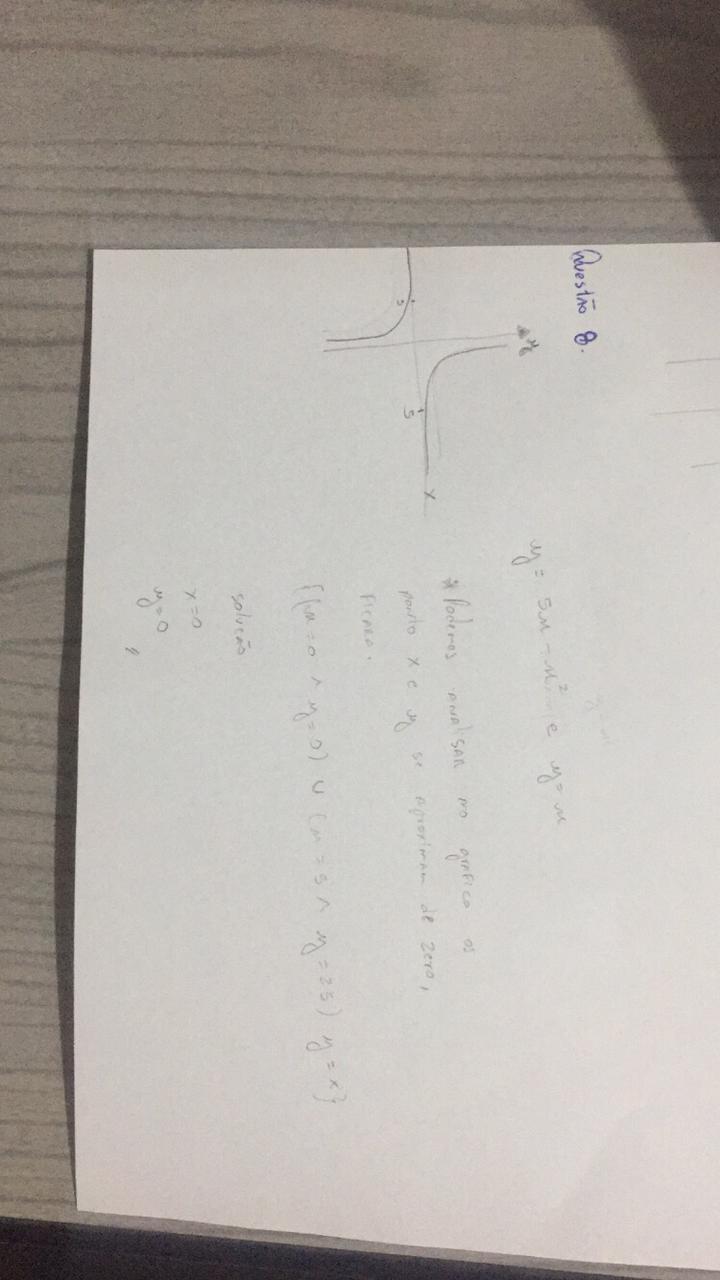 Questão 8.
y = 5x - x² e y = x
y
x
5
5
* Podemos analisar no grafico os
ponto x e y se aproximam de zero,
ficara.
{(x=0 ^ y=0) ∪ (x=5 ^ y=25) y=x}
solução
x=0
y=0